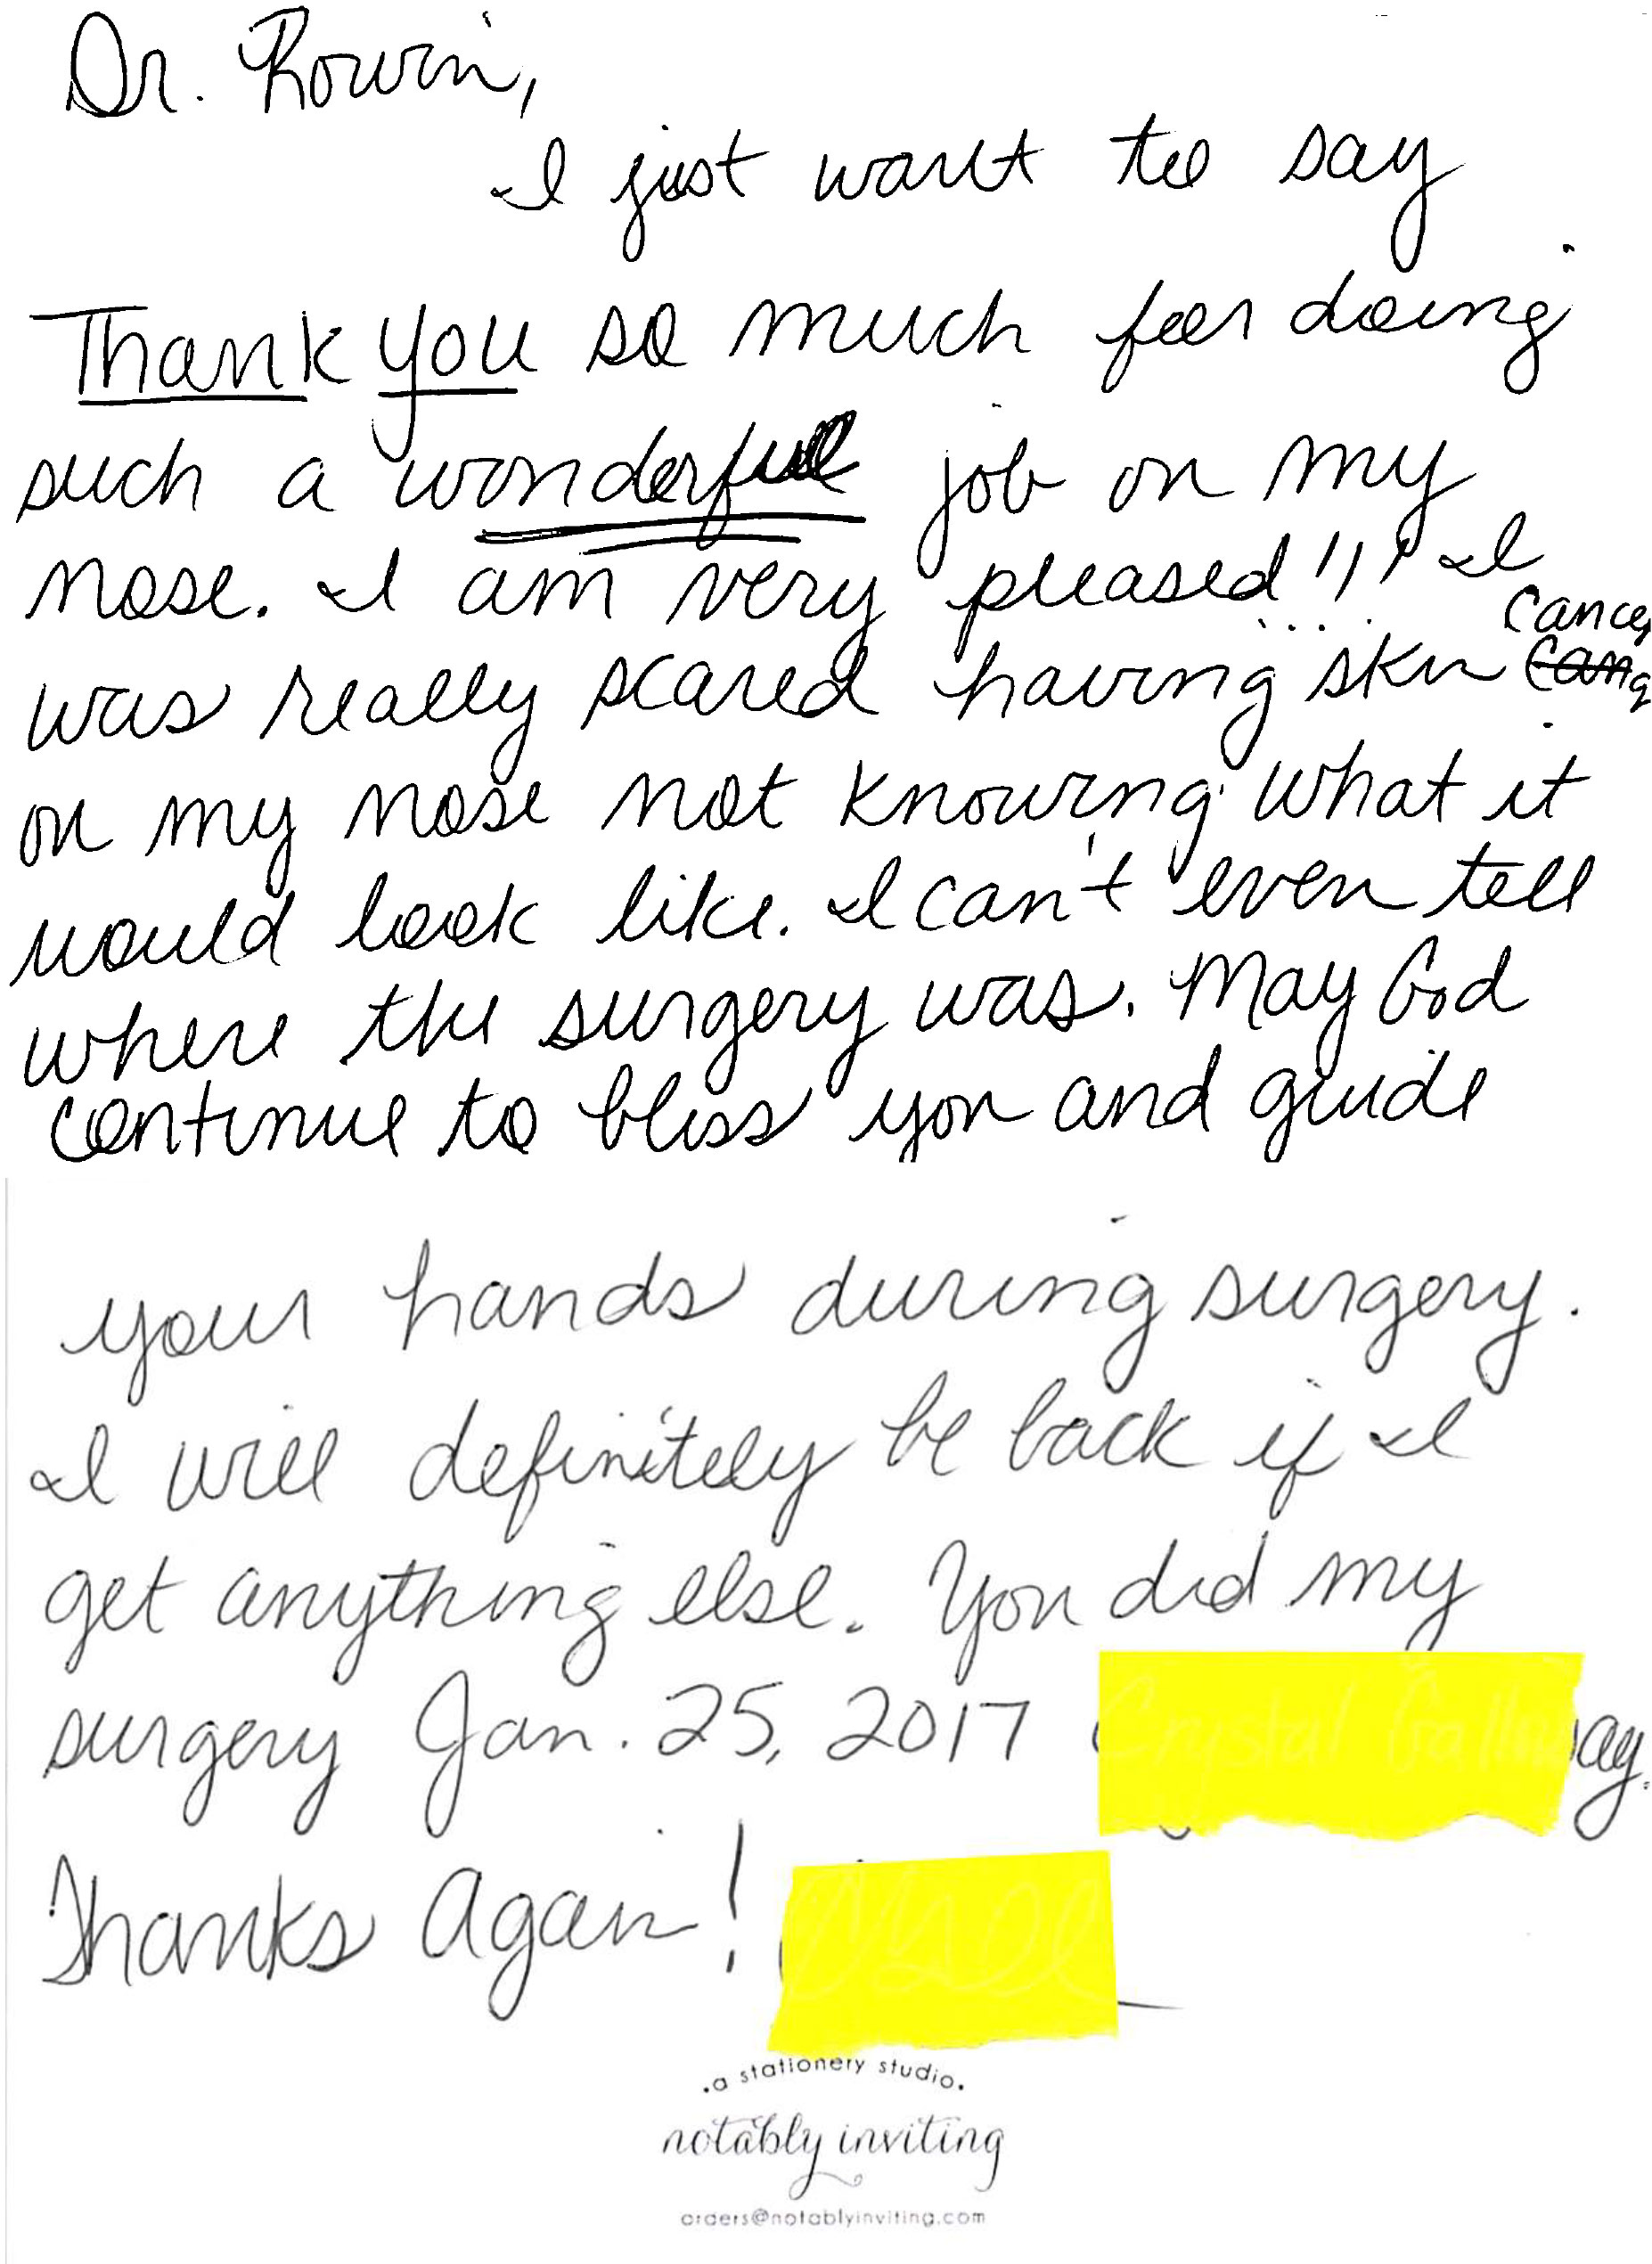 Dr. Rowin,
I just want to say
Thank you so much for doing
such a wonderful job on my
nose. I am very pleased!!! I
cancer
was really scared having skin canc
on my nose not knowing what it
would look like. I can't even tell
where the surgery was. May God
continue to bless you and guide
your hands during surgery.
I will definitely be back if I
get anything else. You did my
surgery Jan. 25, 2017 ay.
Thanks Again!
.a stationery studio.
notably inviting
orders@notablyinviting.com